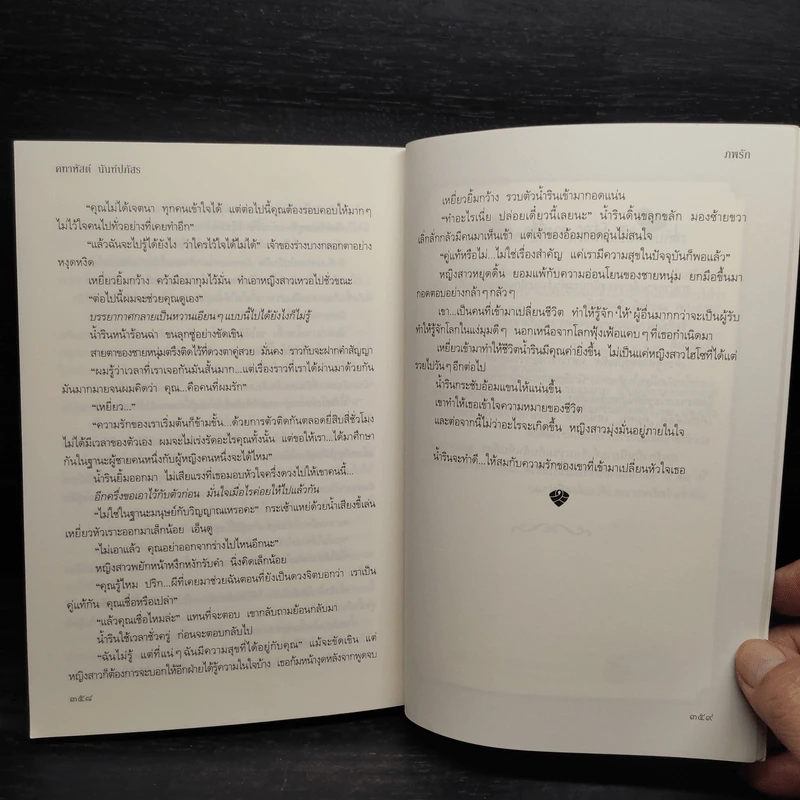 คทาหัสต์ นันท์ปภัสร
"คุณไม่ได้เจตนา ทุกคนเข้าใจได้ แต่ต่อไปนี้คุณต้องรอบคอบให้มากๆ
ไม่ไว้ใจคนไปทั่วอย่างที่เคยทำอีก"
"แล้วฉันจะไปรู้ได้ยังไง ว่าใครไว้ใจได้ไม่ได้" เจ้าของร่างบางกลอกตาอย่าง
หงุดหงิด
เหยี่ยวยิ้มกว้าง คว้ามือมากุมไว้มั่น ทำเอาหญิงสาวเหวอไปชั่วขณะ
"ต่อไปนี้ผมจะช่วยคุณดูเอง"
บรรยากาศกลายเป็นหวานเอียนๆ แบบนี้ไปได้ยังไงก็ไม่รู้
น้ำรินหน้าร้อนฉ่า ขนลุกซู่อย่างขัดเขิน
สายตาของชายหนุ่มตรึงติดไว้ที่ดวงตาคู่สวย มั่นคง ราวกับจะฝากคำสัญญา
"ผมรู้ว่าเวลาที่เราเจอกันมันสั้นมาก...แต่เรื่องราวที่เราได้ผ่านมาด้วยกัน
มันมากมายจนผมคิดว่า คุณ...คือคนที่ผมรัก"
"เหยี่ยว..."
"ความรักของเราเริ่มต้นก็ข้ามขั้น...ด้วยการตัวติดกันตลอดยี่สิบสี่ชั่วโมง
ไม่ได้มีเวลาของตัวเอง ผมจะไม่เร่งรัดอะไรคุณทั้งนั้น แต่ขอให้เรา...ได้มาศึกษา
กันในฐานะผู้ชายคนหนึ่งกับผู้หญิงคนหนึ่งจะได้ไหม"
น้ำรินยิ้มออกมา ไม่เสียแรงที่เธอมอบหัวใจครึ่งดวงไปให้เขาคนนี้...
อีกครึ่งขอเอาไว้กับตัวก่อน มั่นใจเมื่อไรค่อยให้ไปแล้วกัน
"ไม่ใช่ในฐานะมนุษย์กับวิญญาณเหรอคะ" กระเซ้าแหย่ด้วยน้ำเสียงขี้เล่น
เหยี่ยวหัวเราะออกมาเล็กน้อย เอ็นดู
"ไม่เอาแล้ว คุณอย่าออกจากร่างไปไหนอีกนะ"
หญิงสาวพยักหน้าหงึกหงักรับคำ นิ่งคิดเล็กน้อย
"คุณรู้ไหม ปริก...ผีที่เคยมาช่วยฉันตอนที่ยังเป็นดวงจิตบอกว่า เราเป็น
คู่แท้กัน คุณเชื่อหรือเปล่า"
"แล้วคุณเชื่อไหมล่ะ" แทนที่จะตอบ เขากลับถามย้อนกลับมา
น้ำรินใช้เวลาชั่วครู่ ก่อนจะตอบกลับไป
"ฉันไม่รู้ แต่ที่แน่ๆ ฉันมีความสุขที่ได้อยู่กับคุณ" แม้จะขัดเขิน แต่
หญิงสาวก็ต้องการจะบอกให้อีกฝ่ายได้รู้ความในใจบ้าง เธอก้มหน้างุดหลังจากพูดจบ
๓๕๘
ภพรัก
เหยี่ยวยิ้มกว้าง รวบตัวน้ำรินเข้ามากอดแน่น
"ทำอะไรเนี่ย ปล่อยเดี๋ยวนี้เลยนะ" น้ำรินดิ้นขลุกขลัก มองซ้ายขวา
เลิ่กลั่กกลัวมีคนมาเห็นเข้า แต่เจ้าของอ้อมกอดอุ่นไม่สนใจ
"คู่แท้หรือไม่...ไม่ใช่เรื่องสำคัญ แค่เรามีความสุขในปัจจุบันก็พอแล้ว"
หญิงสาวหยุดดิ้น ยอมแพ้กับความอ่อนโยนของชายหนุ่ม ยกมือขึ้นมา
กอดตอบอย่างกล้าๆ กลัวๆ
เขา...เป็นคนที่เข้ามาเปลี่ยนชีวิต ทำให้รู้จัก 'ให้' ผู้อื่นมากกว่าจะเป็นผู้รับ
ทำให้รู้จักโลกในแง่มุมดีๆ นอกเหนือจากโลกฟุ้งเฟ้อแคบๆ ที่เธอกำเนิดมา
เหยี่ยวเข้ามาทำให้ชีวิตน้ำรินมีคุณค่ายิ่งขึ้น ไม่เป็นแค่หญิงสาวไฮโซที่ได้แต่
รวยไปวันๆ อีกต่อไป
น้ำรินกระชับอ้อมแขนให้แน่นขึ้น
เขาทำให้เธอเข้าใจความหมายของชีวิต
และต่อจากนี้ไม่ว่าอะไรจะเกิดขึ้น หญิงสาวมุ่งมั่นอยู่ภายในใจ
น้ำรินจะทำดี...ให้สมกับความรักของเขาที่เข้ามาเปลี่ยนหัวใจเธอ
๓๕๙